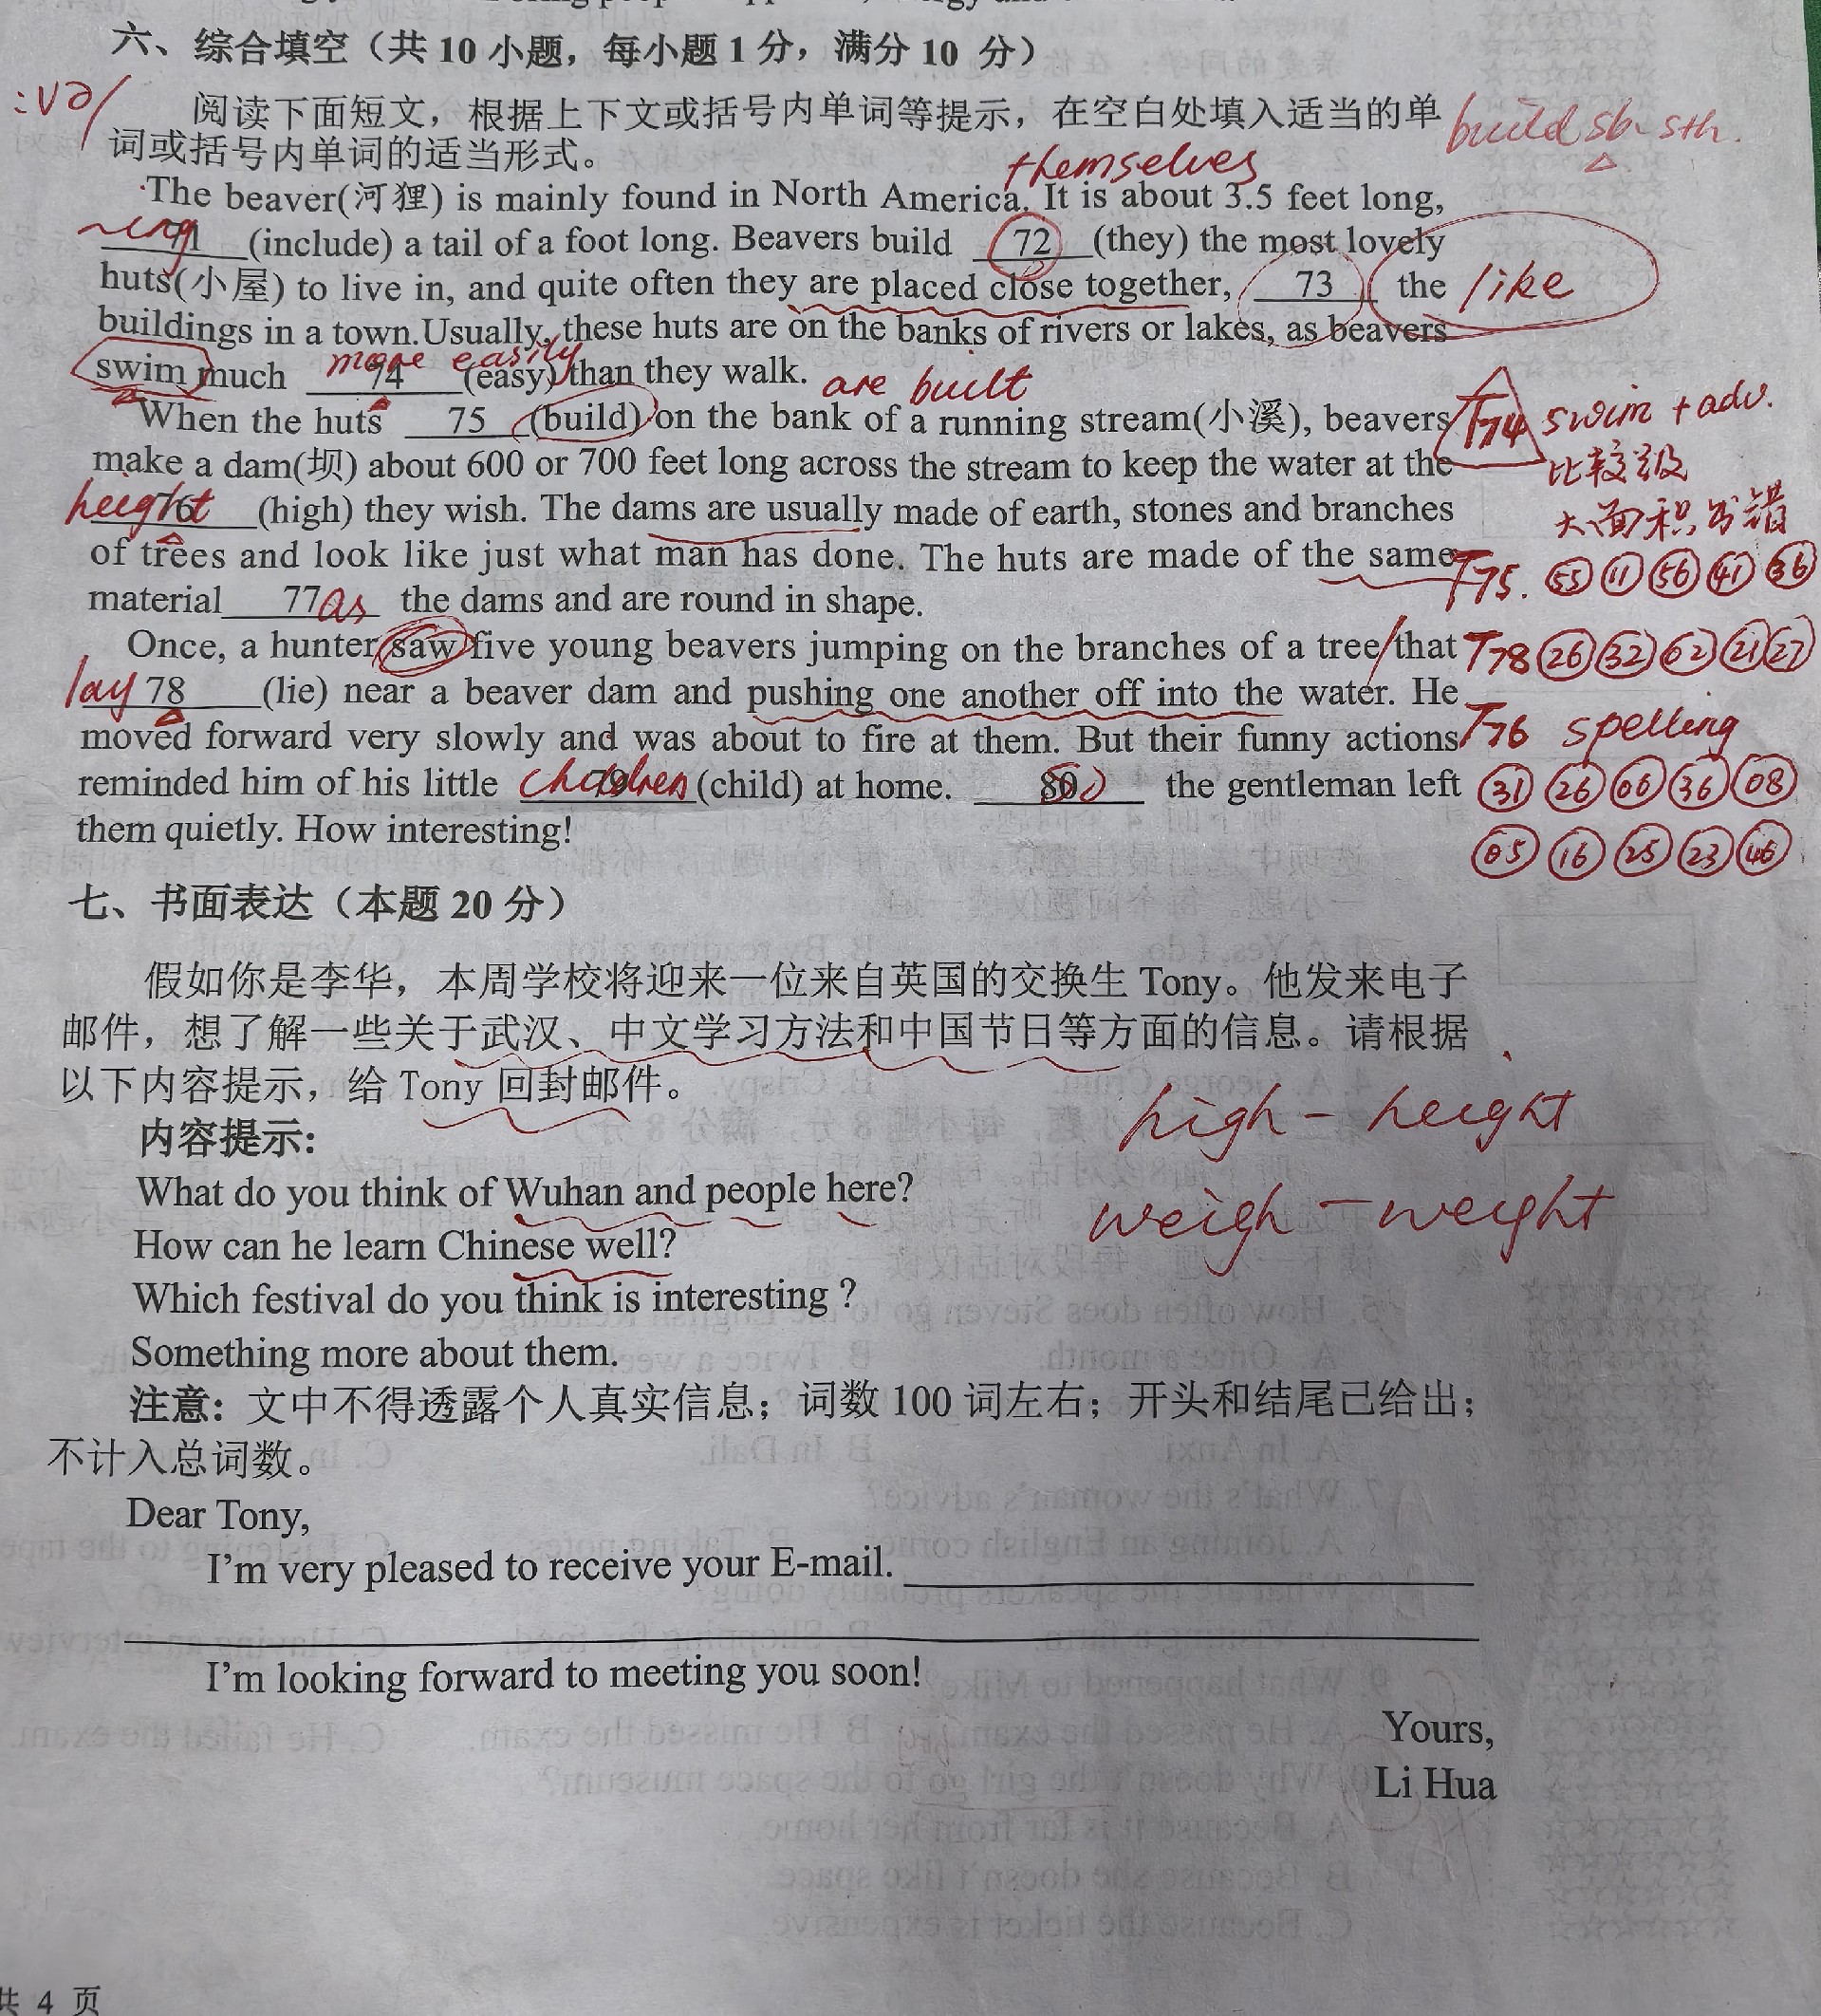 六、综合填空（共 10 小题，每小题 1 分，满分 10 分）
:və/
阅读下面短文，根据上下文或括号内单词等提示，在空白处填入适当的单
build sb. sth.
词或括号内单词的适当形式。
themselves
The beaver(河狸) is mainly found in North America. It is about 3.5 feet long,
~ing 71 (include) a tail of a foot long. Beavers build 72 (they) the most lovely
huts(小屋) to live in, and quite often they are placed close together, 73 the like
buildings in a town.Usually, these huts are on the banks of rivers or lakes, as beavers
more easily
swim much 74 (easy) than they walk.
are built
When the huts 75 (build) on the bank of a running stream(小溪), beavers
T74 swim + adv.
比较级
make a dam(坝) about 600 or 700 feet long across the stream to keep the water at the
height 76 (high) they wish. The dams are usually made of earth, stones and branches
大面积出错
of trees and look like just what man has done. The huts are made of the same
T75. 55 11 56 41 36
material 77 as the dams and are round in shape.
Once, a hunter saw five young beavers jumping on the branches of a tree that
T78 26 32 02 21 27
lay 78 (lie) near a beaver dam and pushing one another off into the water. He
T76 spelling
moved forward very slowly and was about to fire at them. But their funny actions
reminded him of his little children 79 (child) at home. 80 So the gentleman left
31 26 06 36 08
them quietly. How interesting!
05 16 25 23 46
七、书面表达（本题 20 分）
假如你是李华，本周学校将迎来一位来自英国的交换生 Tony。他发来电子
邮件，想了解一些关于武汉、中文学习方法和中国节日等方面的信息。请根据
以下内容提示，给 Tony 回封邮件。
high - height
内容提示:
What do you think of Wuhan and people here?
weigh - weight
How can he learn Chinese well?
Which festival do you think is interesting ?
Something more about them.
注意：文中不得透露个人真实信息；词数 100 词左右；开头和结尾已给出；
不计入总词数。
Dear Tony,
I'm very pleased to receive your E-mail.
I'm looking forward to meeting you soon!
Yours,
Li Hua
共 4 页